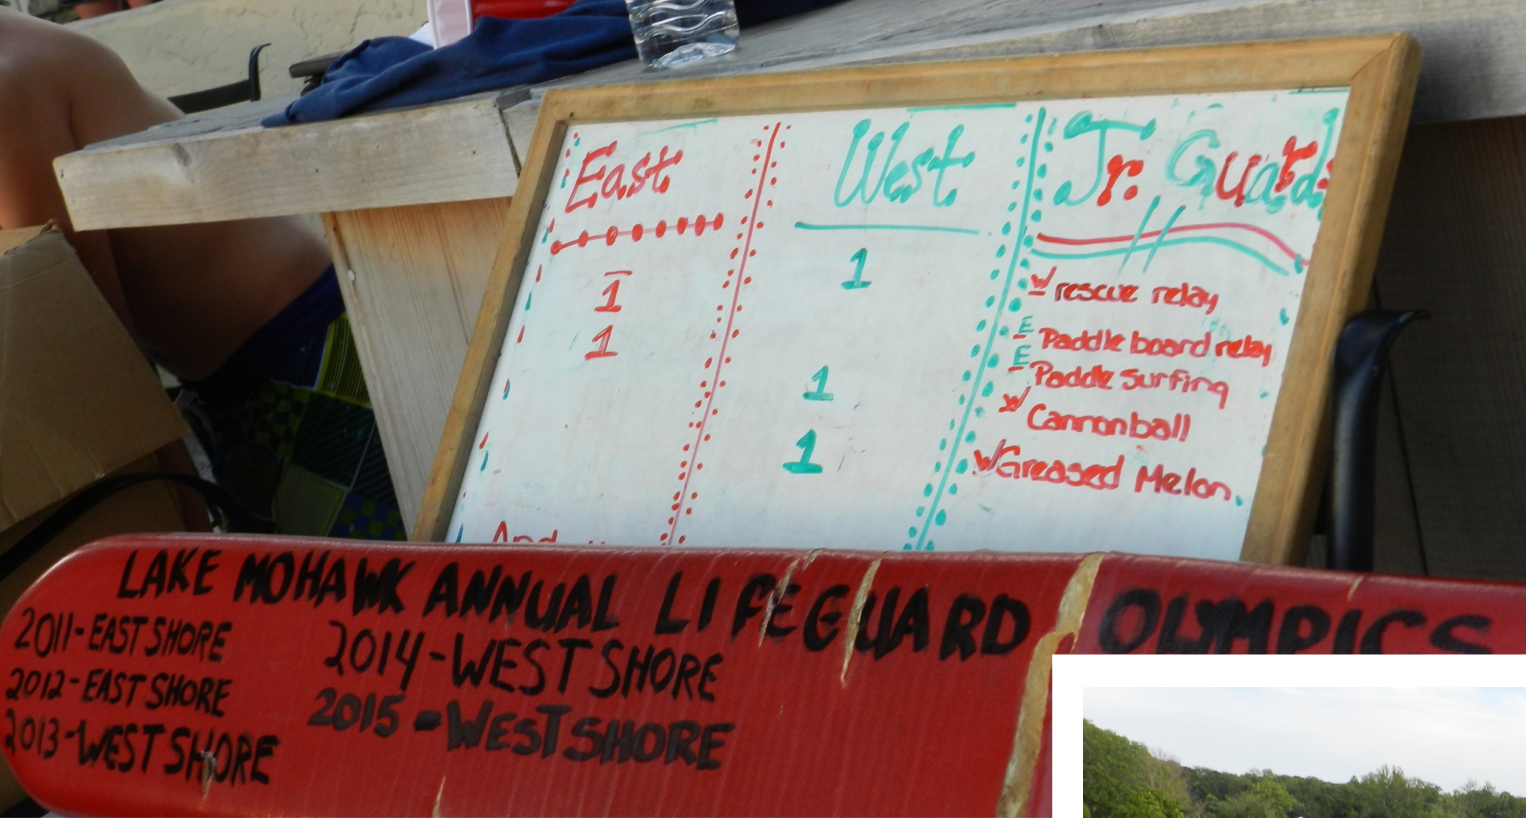 East West Jr. Guards
1 W rescue relay
1 E Paddle board relay
1 E Paddle Surfing
1 W Cannonball
1 W Greased Melon.
LAKE MOHAWK ANNUAL LIFEGUARD OLYMPICS
2011-EAST SHORE
2012-EAST SHORE
2013-WEST SHORE
2014-WEST SHORE
2015-WEST SHORE